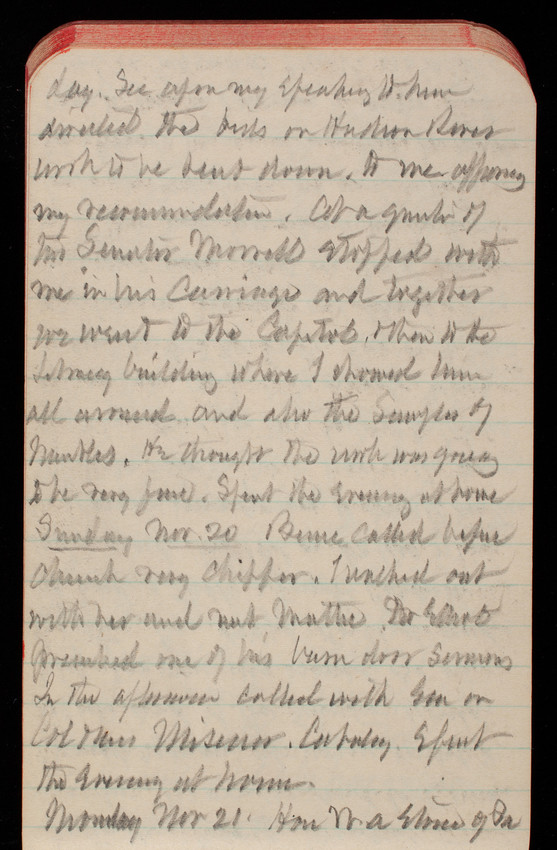 day. Sec upon my speaking to him
directed the bids on Hudson River
work to be sent down. to me
my recommendation. At a quarter of
Senator Morrell stopped with
me in his Carriage and together
we went to the Capitol, then to the
Library building where I showed him
all around and also the Samples of
Marbles. He thought the work was going
to be very fine. Spent the evening at home
Sunday Nov. 20 called before
Church very Chipper. I walked out
with her and met Mattie. Dr
preached one of his barn door Sermons
In the afternoon called with Gen on
Col & Mrs Misener. Spent
the Evening at home.
Monday Nov 21. Hon W. A Stone of Pa